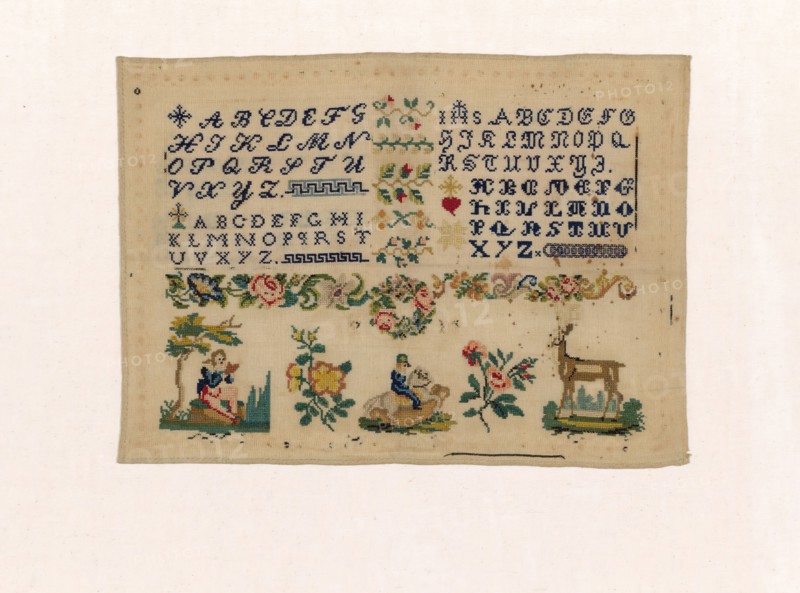 A B C D E F G
H I K L M N
O P Q R S T U
V X Y Z.
A B C D E F G H I
K L M N O P Q R S T
U V X Y Z.
A B C D E F G
H I K L M N O P Q
R S T U V X Y Z.
A B C D E F G
H I K L M N O
P Q R S T U V
X Y Z
PHOTO12